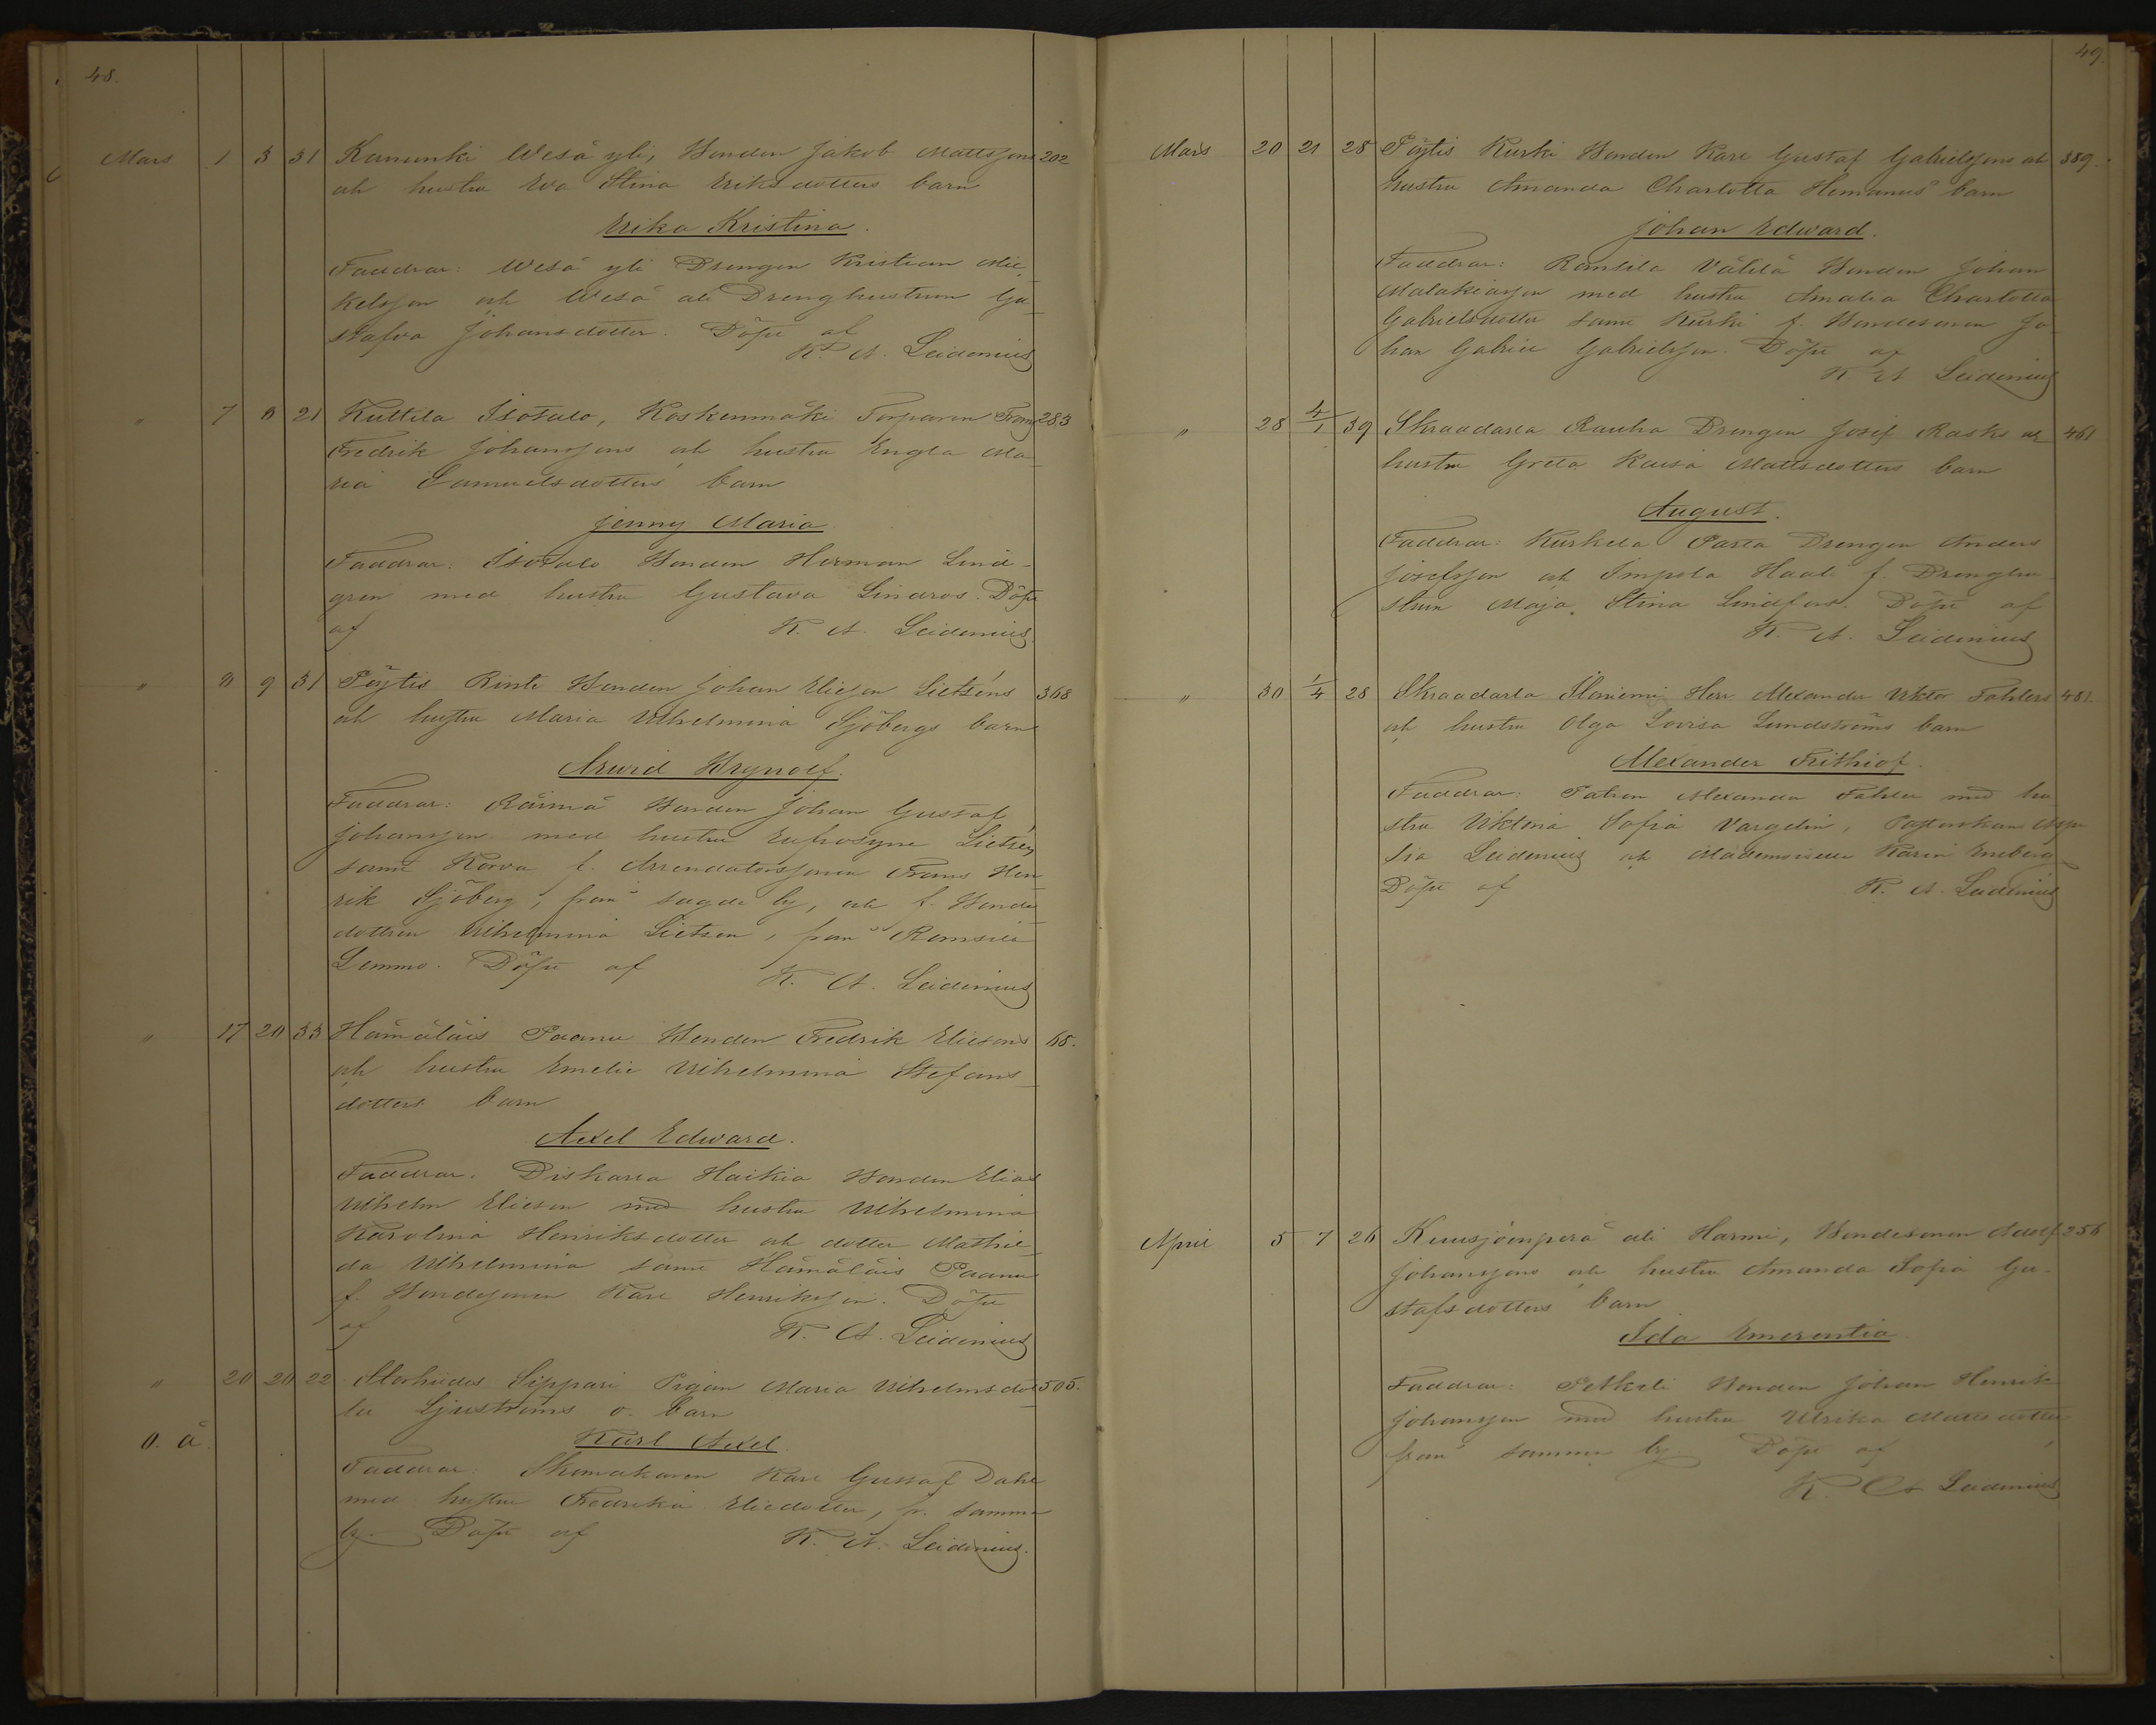 48.
Mars 1 3 31 Karvunki Wesä yli, Bonden Jakob Mattssons 202
och hustru Eva Stina Eriksdotters barn
Erika Kristina.
Faddrar: Wesä yli Drengen Kristian Mic-
kelsson och Wesä ali Drenghustrun Gu-
stafva Johansdotter. Döpt af
K. A. Leidenius
" 7 8 21 Kuttila Isotalo, Koskenmäki Torparen Frans 283
Fredrik Johanssons och hustru Engla Ma-
ria Samuelsdotters barn
Jenny Maria
Faddrar: Isotalo Bonden Herman Lind-
gren med hustru Gustava Lindros. Döpt
af K. A. Leidenius.
" 8 9 31 Pöytis Rinte Bonden Johan Elieson Lietzéns 368
och hustru Maria Wilhelmina Sjöbergs barn
Arvid Brynolf.
Faddrar: Räimä Bonden Johan Gustaf
Johansson med hustru Eufrosyne Lietzen,
samt Korva f. Arrendatorssonen Frans Hen-
rik Sjöberg, från sagde by, och f. Bonde
dottren Wilhelmina Lietzen, från Ramsila
Lemmo. Döpt af K. A. Leidenius
" 17 20 33 Hämäläis Paanu Bonden Fredrik Eliesons 65.
och hustru Emelie Wilhelmina Stefans-
dotters barn
Axel Edward.
Faddrar. Diskarla Haikia Bonden Elias
Wilhelm Elieson med hustru Wilhelmina
Karolina Henriksdotter och dotter Mathil-
da Wilhelmina samt Hämäläis Paanu
f. Bondesonen Karl Henriksson. Döpt
af K. A. Leidenius
" 20 20 22 Storhiidos Sippari Pigan Maria Wilhelmsdot- 505.
ter Ljuströms o. barn
o. ä. Karl Axel
Faddrar: Skomakaren Karl Gustaf Dahl
med hustru Fredrika Eliedotter, fr. samma
by. Döpt af K. A. Leidenius.
49.
Mars 20 21 28 Pöytis Kurki Bonden Karl Gustaf Gabrielssons och 389.
hustru Amanda Charlotta Hemanus' barn
Johan Edward.
Faddrar: Ramsila Välilä Bonden Johan
Malakiasson med hustru Amalia Charlotta
Gabrielsdotter samt Kurki f. Bondesonen Jo-
han Gabriel Gabrielsson. Döpt af
K A Leidenius
" 28 4/1 39 Skraadarla Rauha Drengen Josef Rasks och 461
hustru Greta Kaisa Mattsdotters barn
August.
Faddrar: Kurkela Parta Drengen Anders
Josefsson och Impola Haali f. Drenghu-
strun Maja Stina Lindfors. Döpt af
K. A. Leidenius
" 30 1/4 28 Skraadarla Iloniemi Herr Alexander Viktor Fahlers 481.
och hustru Olga Lovisa Lundströms barn
Alexander Frithiof.
Faddrar: Patron Alexander Fahler med hu-
stru Viktoria Sofia Vargelin, Pastorskan
Leidenius och Mademoiselle Karin Eneberg
Döpt af K. A. Leidenius
April 5 7 26 Kuusjoenperä ali Harmi, Bondesonen Adolf 256
Johanssons och hustru Amanda Sofia Gu-
stafsdotters barn
Ida Emerentia
Faddrar: Petkeli Bonden Johan Henrik
Johansson med hustru Ulrika Mattsdotter
från samma by. Döpt af
K. A Leidenius